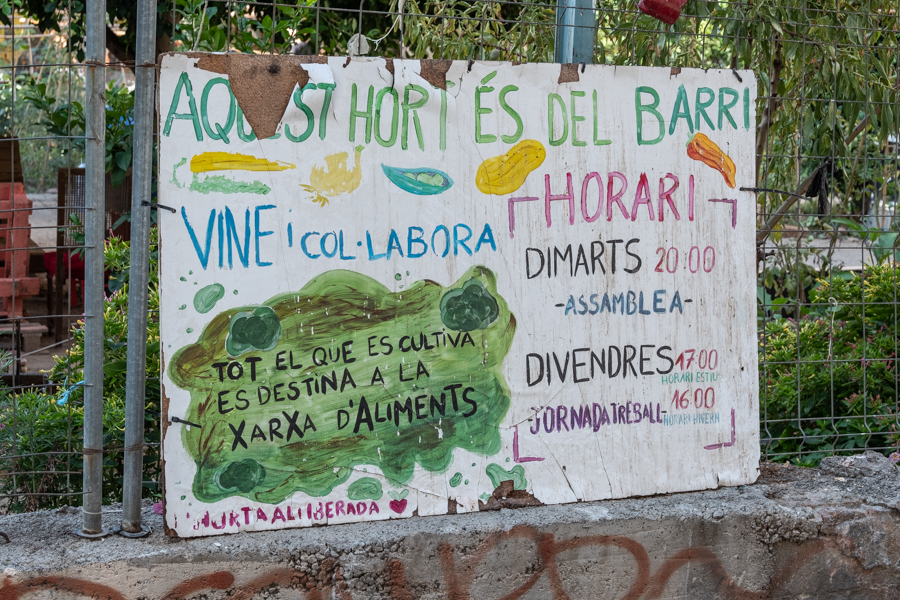 AQUEST HORT ÉS DEL BARRI
VINE i COL·LABORA
TOT EL QUE ES CULTIVA
ES DESTINA A LA
XARXA D'ALIMENTS
HORTA ALLIBERADA
HORARI
DIMARTS 20:00
-ASSAMBLEA-
DIVENDRES 17:00
HORARI ESTIU
16:00
-JORNADA TREBALL- HORARI HIVERN